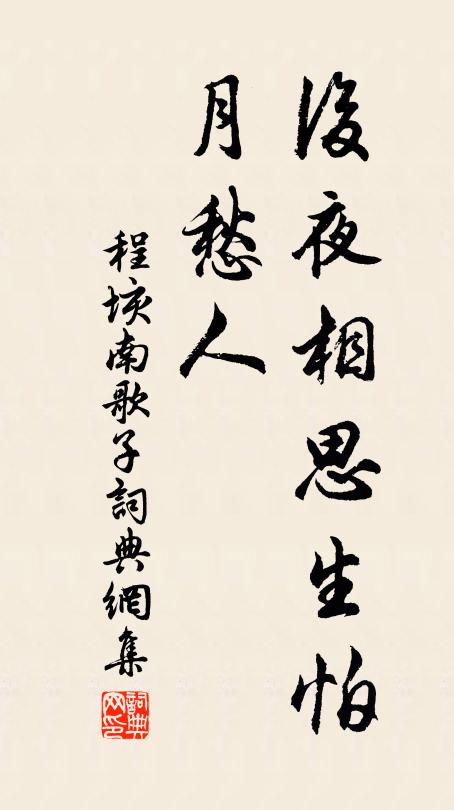 後夜相思生怕
月愁人
程垓南歌子詞典網集
詞典網印